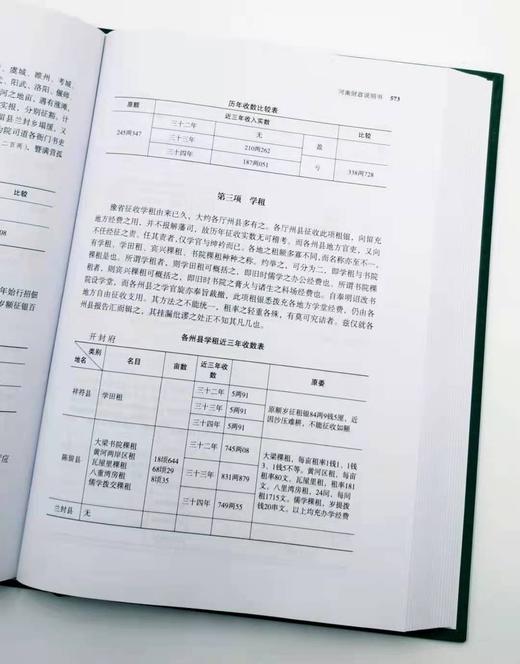 、虞城、睢州、考城、
、阳武、洛阳、偃师、
河之地亩，遇有淮滩，
实报，分别征豁，计
留县兰封乡塌缓，又
为院司道各衙门书吏
二百两），暂满音孤
比较
年始行招佃
岁额征银百
河南财政说明书 573
历年收数比较表
原额 近三年收入实数 比较
245两347
三十二年 无
三十三年 210两262
三十四年 187两051
盈
亏 338两728
第三项 学租
豫省征收学租由来已久，大约各厅州县多有之。各厅州县征收此项租银，向留充
地方经费之用，并不报解藩司，故历年征收实数无可稽考。而各州县地方官吏，又向
不任经征之责。任其责者，仅学官与绅衿而已。各地之租额多寡不同，而名称亦至不一，
有学租、学田租、宾兴稞租、书院稞租种种之称。约举之，可分为二，即学租与书院
稞租是也。所谓学租者，则学田租可概括之，即旧时儒学之办公经费也。所谓书院稞
租者，则宾兴稞租可概括之，即旧时书院之膏火与诸生之科场经费也。自泰明诏改书
院设学堂，而各州县之学官旋亦奉旨裁撤，此项租银悉拨充各地方学堂经费，仍由各
地方自由征收支用。其方法之不能统一，租率之轻重各殊，有莫可究诘者。兹仅就各
州县报告汇而辑之，其挂漏纰谬之处正不知其凡几也。
开封府 各州县学租近三年收数表
类别
地名 名目 亩数 近三年收数 原委
祥符县 学田租
三十二年 5两91
三十三年 5两91
三十四年 5两91
原额岁征租银84两9钱5厘，近
因沙压难耕，不能征收如额
陈留县
大梁书院稞租
黄河两岸区租
瓦屋里稞租
八重湾房租
儒学拨交稞租
18顷644
68顷29
8顷35
三十二年 745两08
三十三年 831两879
三十四年 749两55
大梁稞租，每亩租率1钱1、1钱
3、1钱5不等。黄河区租，每亩
租率80文。瓦屋里租，租率181
文。八里湾房租，24间，每间
租1715文。儒学稞租，岁提拨
钱20串文。以上均充办学经费
兰封县 无